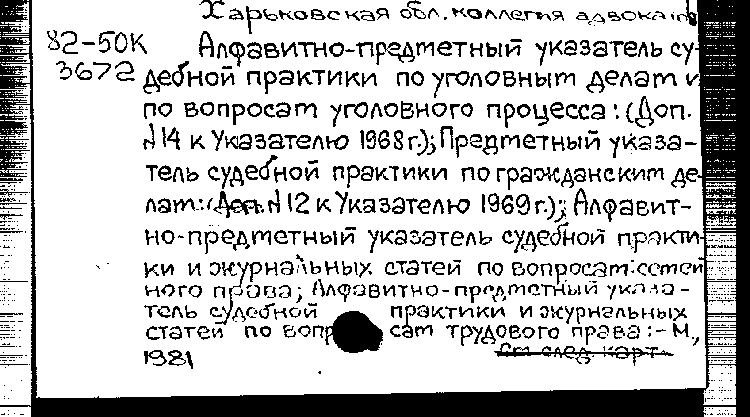 Харьковская обл. коллегия адвокатов
82-50К Алфавитно-предметный указатель су-
3672 дебной практики по уголовным делам и
по вопросам уголовного процесса: (Доп.
N 14 к Указателю 1968 г.); Предметный указа-
тель судебной практики по гражданским де-
лам: (Доп. N 12 к Указателю 1969 г.); Алфавит-
но-предметный указатель судебной практи-
ки и журнальных статей по вопросам семей
ного права; Алфавитно-предметный указа-
тель судебной практики и журнальных
статей по вопросам трудового права: - М,
1981 См след. карт.